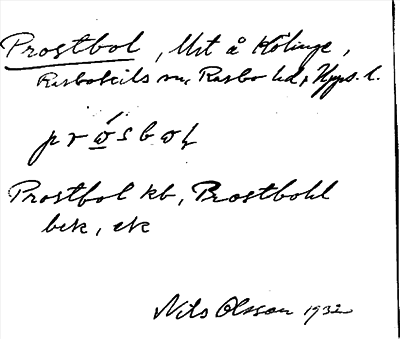 Prostbol, Utt å Kölinge,
Rasbokils sn, Rasbo hd, Upps. l.
pròsboɫ
Prostbol kb, Brostbohl
bek, ek
Nils Olsson 1932